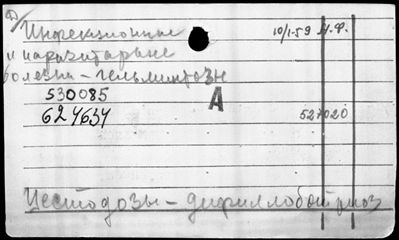 Инфекционные 10/I-59 Н.Ф.
и паразитарные
болезни – гельминтозы
530085 А
624634 527020
Цестодозы – дифиллоботриоз